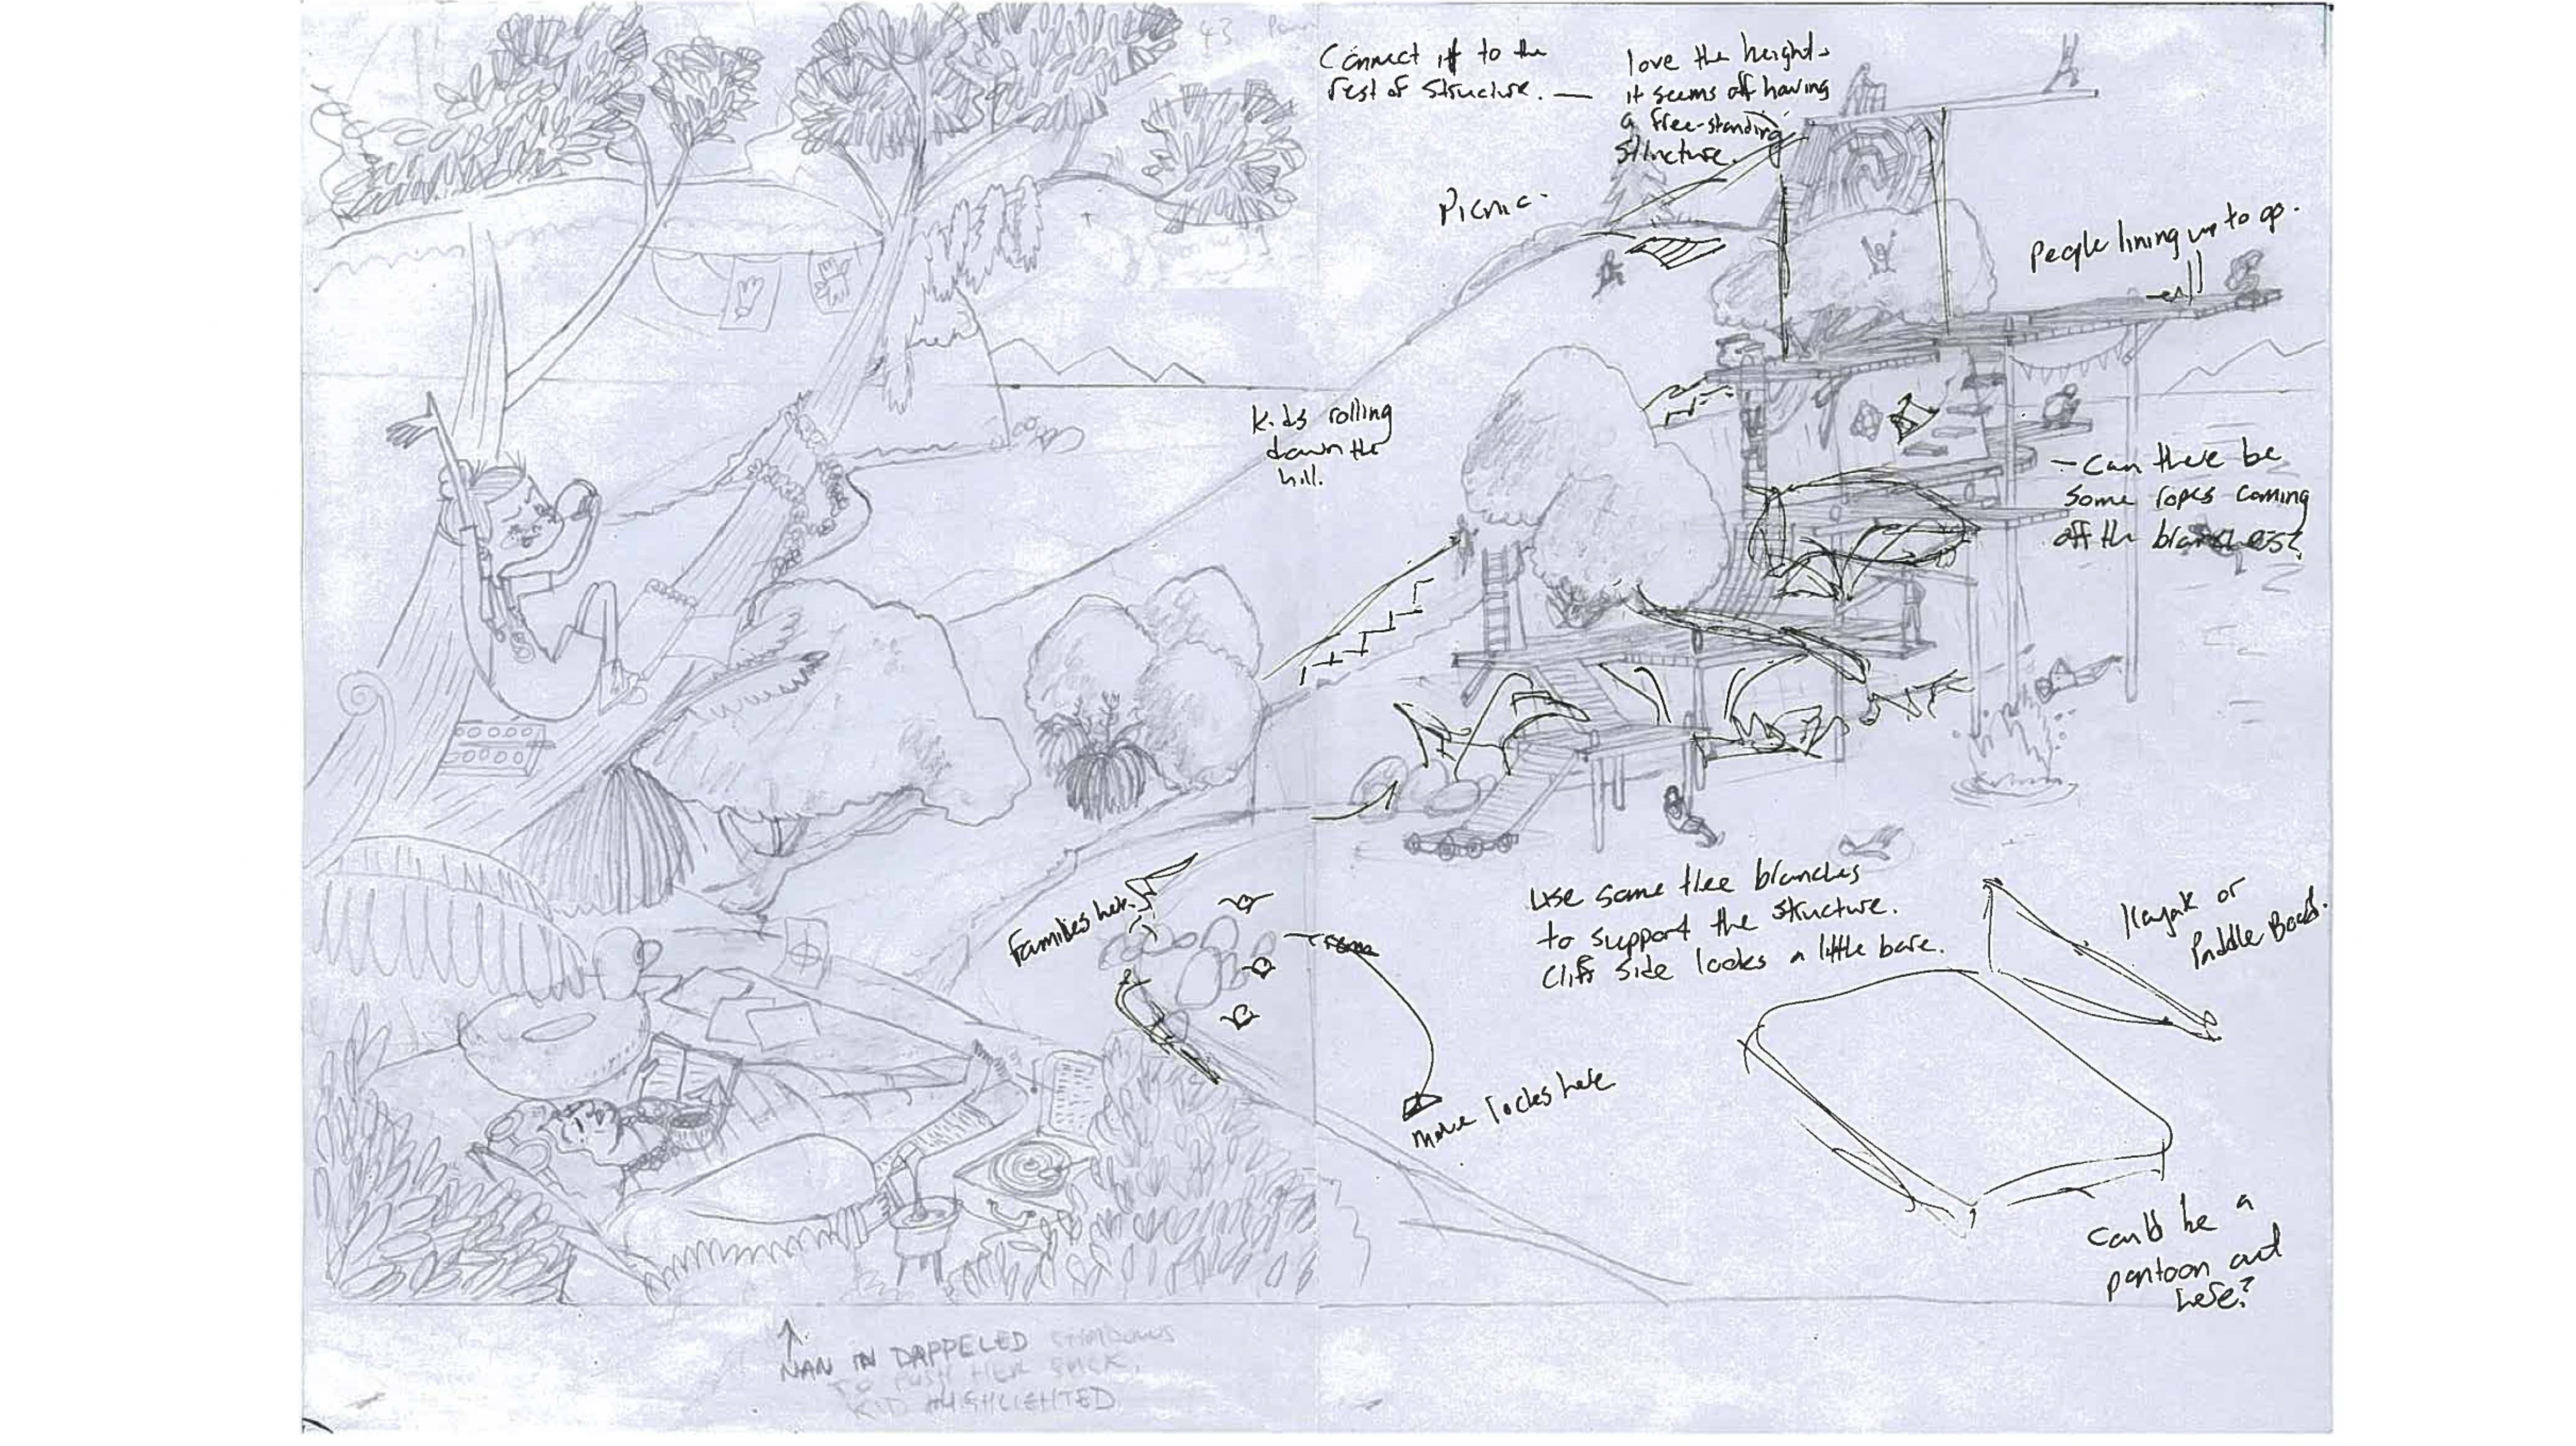 43
Connect it to the
rest of structure. —
love the height -
it seems off having
a free-standing
structure.
Picnic -
People lining up to go.
Kids rolling
down the
hill.
- Can there be
some ropes coming
off the branches?
Families here.
Use some tree branches
to support the structure.
Cliff side looks a little bare.
Kayak or
Paddle Board.
move rocks here
Could be a
pontoon out
here?
NAN IN DAPPELED SHADOWS
TO PUSH HER BACK,
KID HIGHLIGHTED